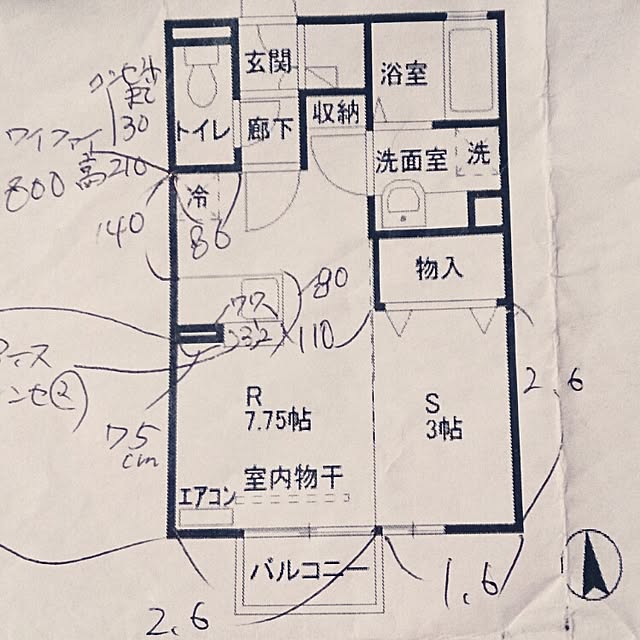 玄関
浴室
コンセント
30
トイレ
廊下
収納
ワイファイ
高210
800
洗面室
洗
冷
140
86
物入
80
32
110
2.6
75
cm
R
7.75帖
S
3帖
室内物干
エアコン
バルコニー
2.6
1.6